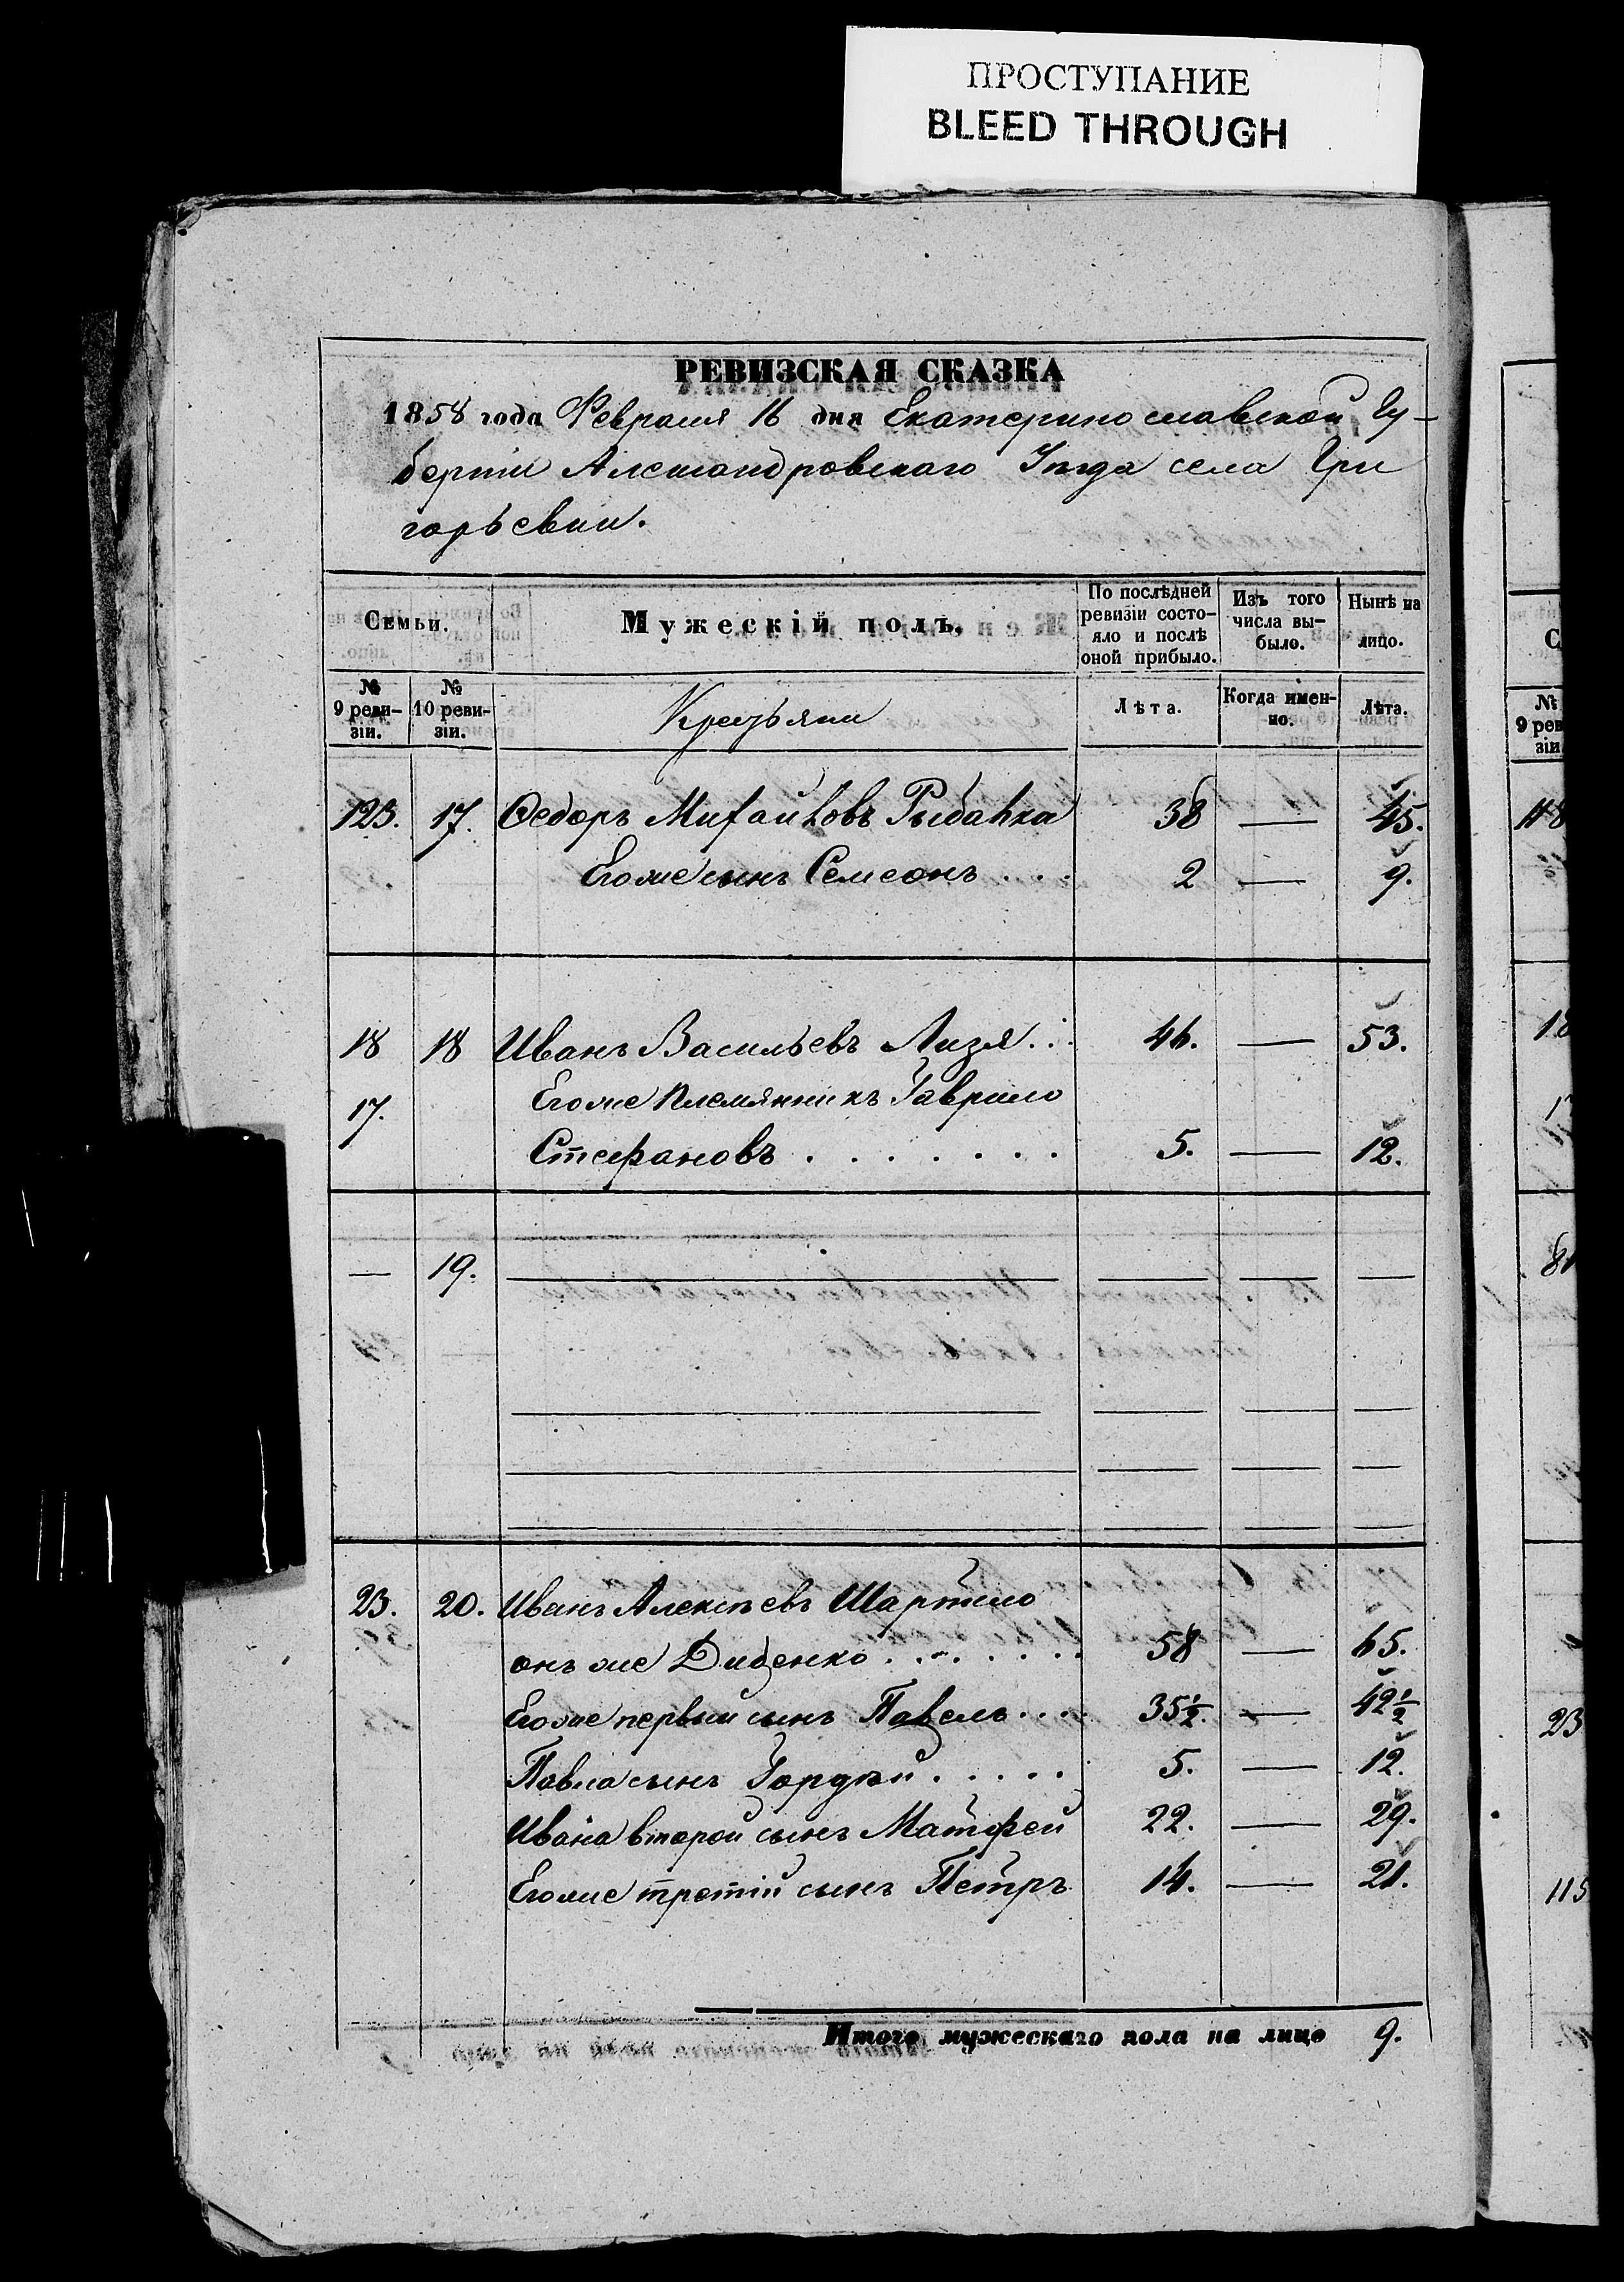 ПРОСТУПАНИЕ
BLEED THROUGH
РЕВИЗСКАЯ СКАЗКА
1858 года Февраля 16 дня Екатеринославской Гу-
берніи Александровскаго Уѣзда села Гри
горьевки.
Семьи. Мужескій полъ. По послѣдней ревизіи состо-яло и послѣ оной прибыло. Изъ того числа вы-было. Нынѣ на лицо.
№ 9 реви-зіи. № 10 реви-зіи. Крестьяни Лѣта. Когда имен-но. Лѣта.
123. 17. Федоръ Михайловъ Рыбалка 38 — 45.
Егоже сынъ Семеонъ . . . 2 — 9.
18 18 Иванъ Васильевъ Лизя . . . 46. — 53.
17. Егоже племянникъ Гаврило
Стефановъ . . . . . . . 5. — 12.
— 19. — — — —
23. 20. Иванъ Алексѣевъ Шартило
онъ же Диденко . . . . . . 58 — 65.
Егоже первый сынъ Павелъ . . . 35½. — 42½
Павла сынъ Гордѣй . . . . . 5. — 12.
Ивана второй сынъ Матфей 22. — 29.
Егоже третій сынъ Петръ 14. — 21.
Итого мужескаго пола на лицо 9.